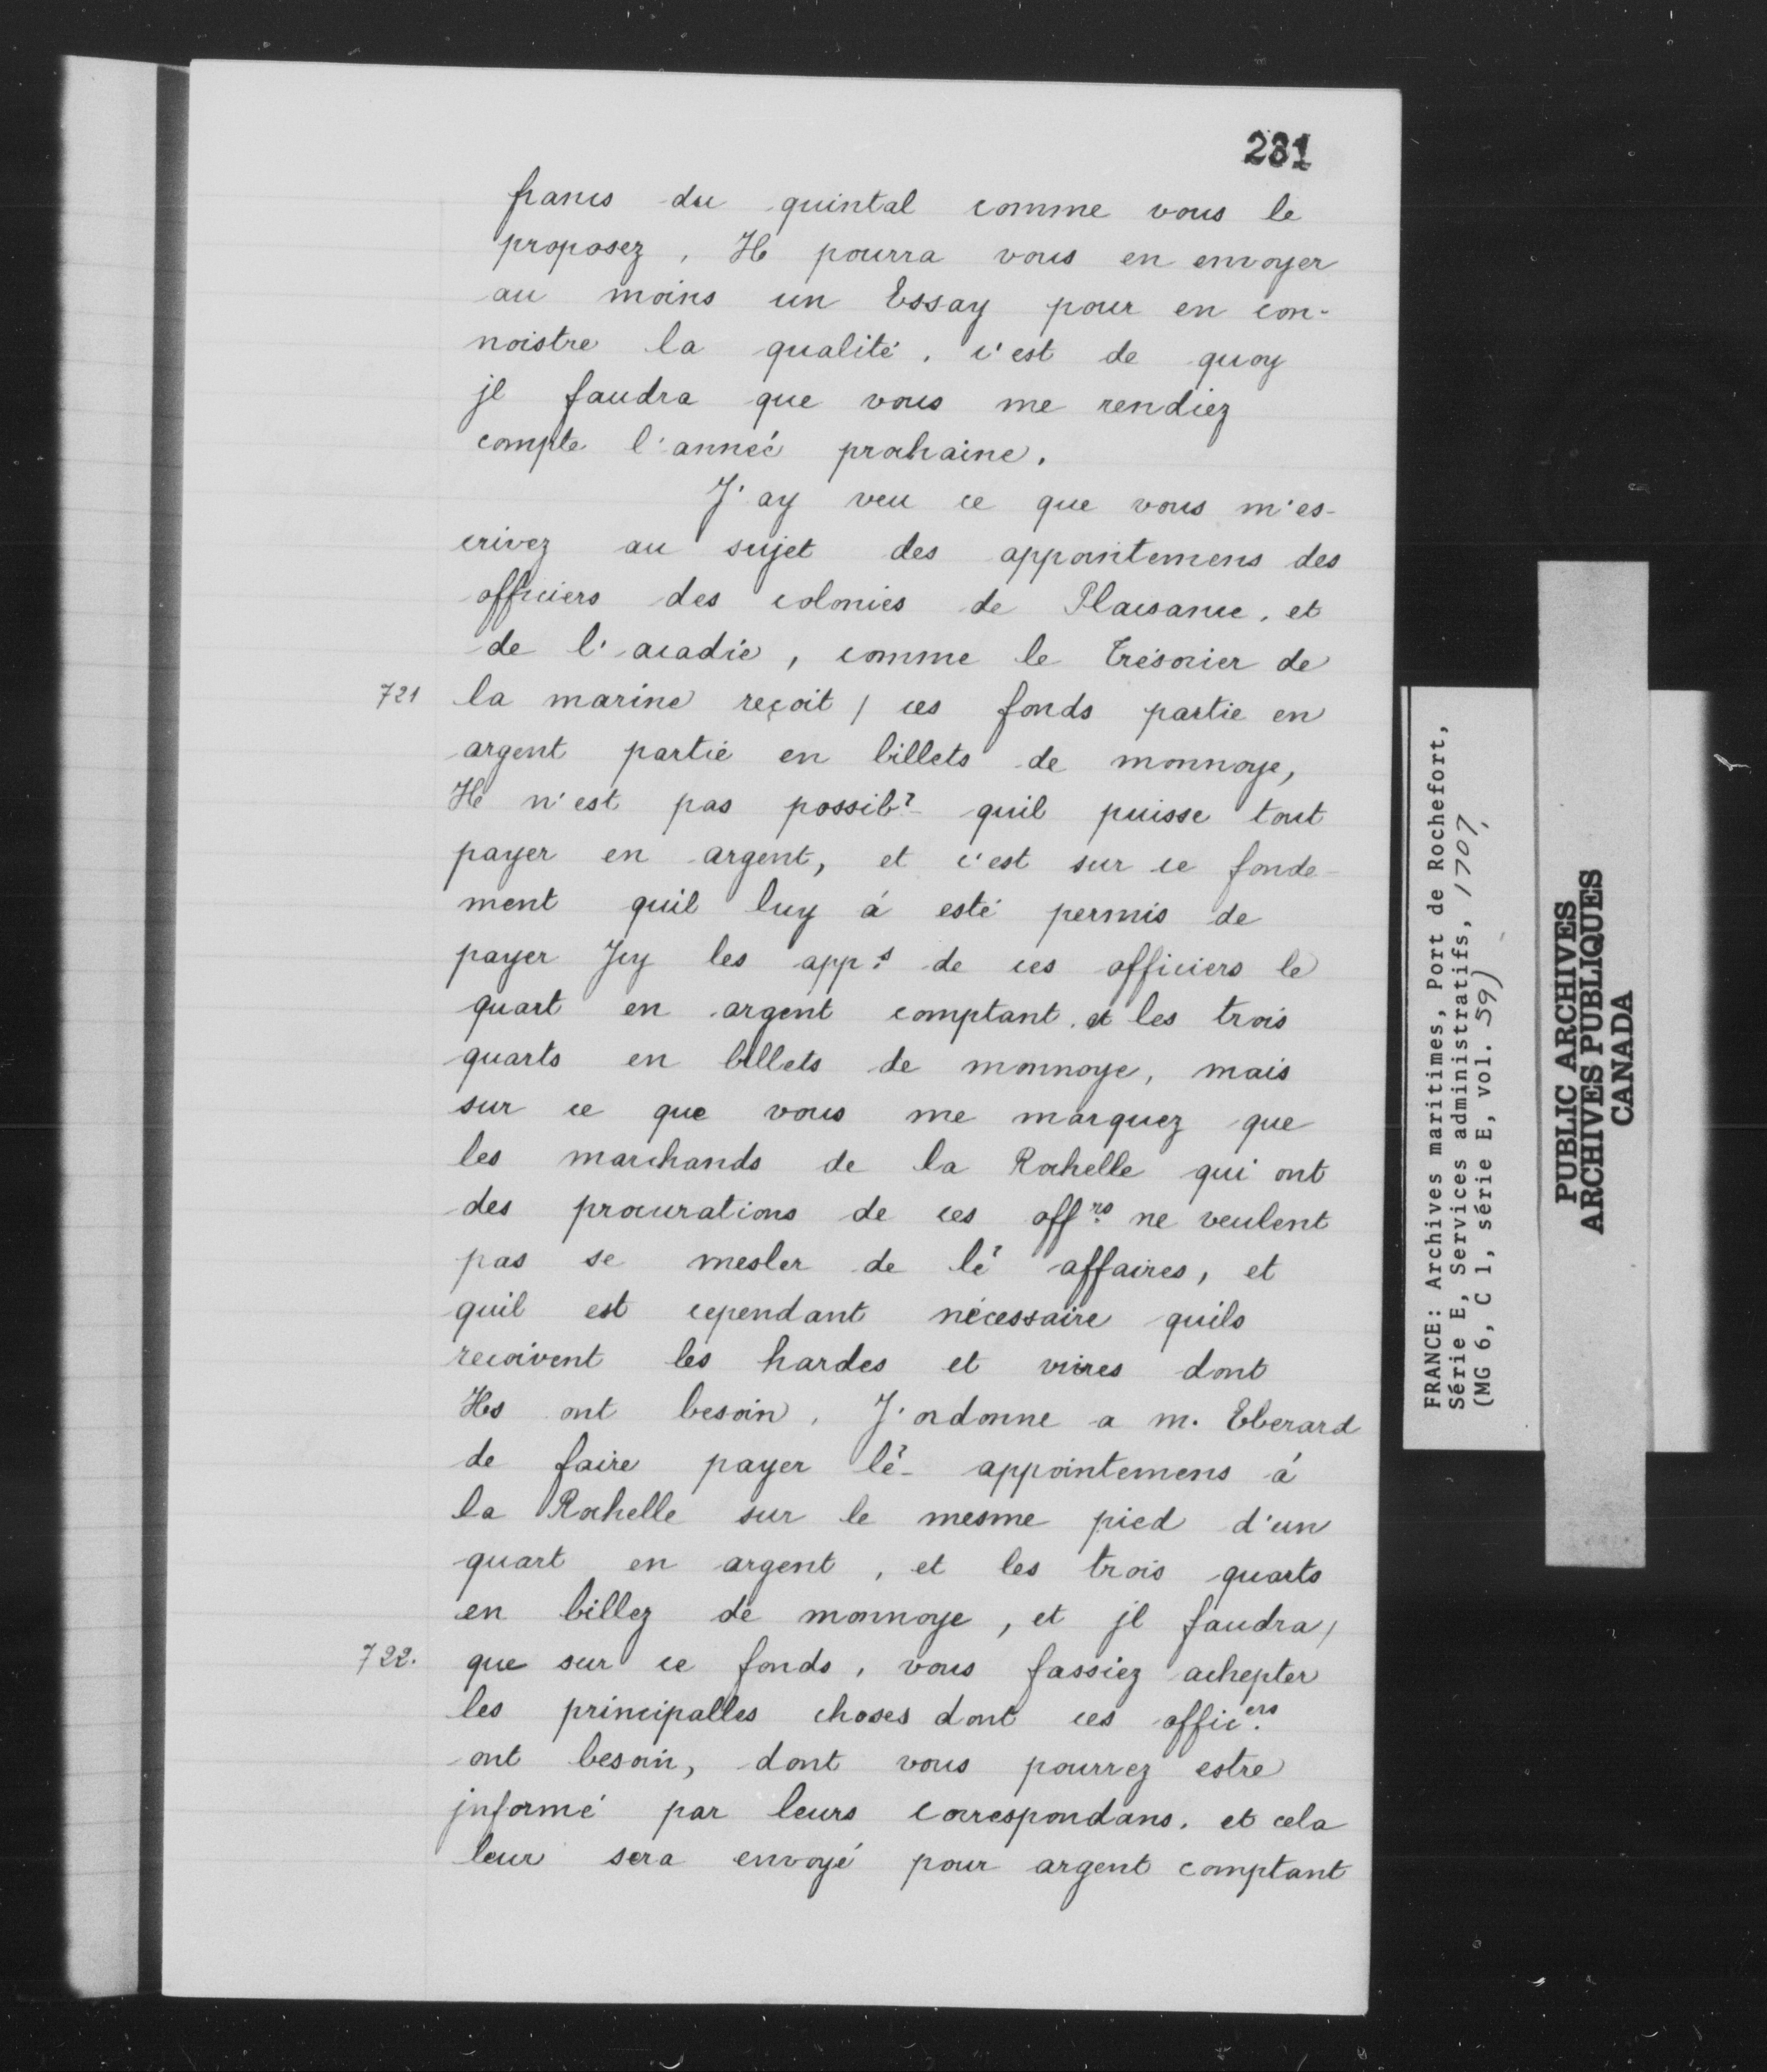 281
francs du quintal comme vous le
proposez, Il pourra vous en envoyer
au moins un Essay pour en con-
noistre la qualité. c'est de quoy
jl faudra que vous me rendiez
compte l'année prochaine.
J'ay veu ce que vous m'es-
crivez au sujet des appointemens des
officiers des colonies de Plaisance, et
de l'acadie, comme le Trésorier de
721 la marine reçoit / ces fonds partie en
argent partie en billets de monnoye,
Il n'est pas possib? quil puisse tout
payer en argent, et c'est sur ce fonde-
ment quil luy á esté permis de
payer Jcy les app.s de ces officiers le
quart en argent comptant et les trois
quarts en billets de monnoye, mais
sur ce que vous me marquez que
les marchands de la Rochelle qui ont
des procurations de ces off.rs ne veulent
pas se mesler de lé affaires, et
quil est cependant nécessaire quils
recoivent les hardes et vivres dont
Ils ont besoin. J'ordonne a m. Eberard
de faire payer lé- appointemens á
la Rochelle sur le mesme pied d'un
quart en argent, et les trois quarts
en billez de monnoye, et jl faudra /
722. que sur ce fonds, vous fassiez achepter
les principalles choses dont ces offic.ers
ont besoin, dont vous pourrez estre
jnformé par leurs correspondans. et cela
leur sera envoyé pour argent comptant
FRANCE: Archives maritimes, Port de Rochefort,
Série E, Services administratifs, 1707,
(MG 6, C 1, série E, vol. 59)
PUBLIC ARCHIVES
ARCHIVES PUBLIQUES
CANADA